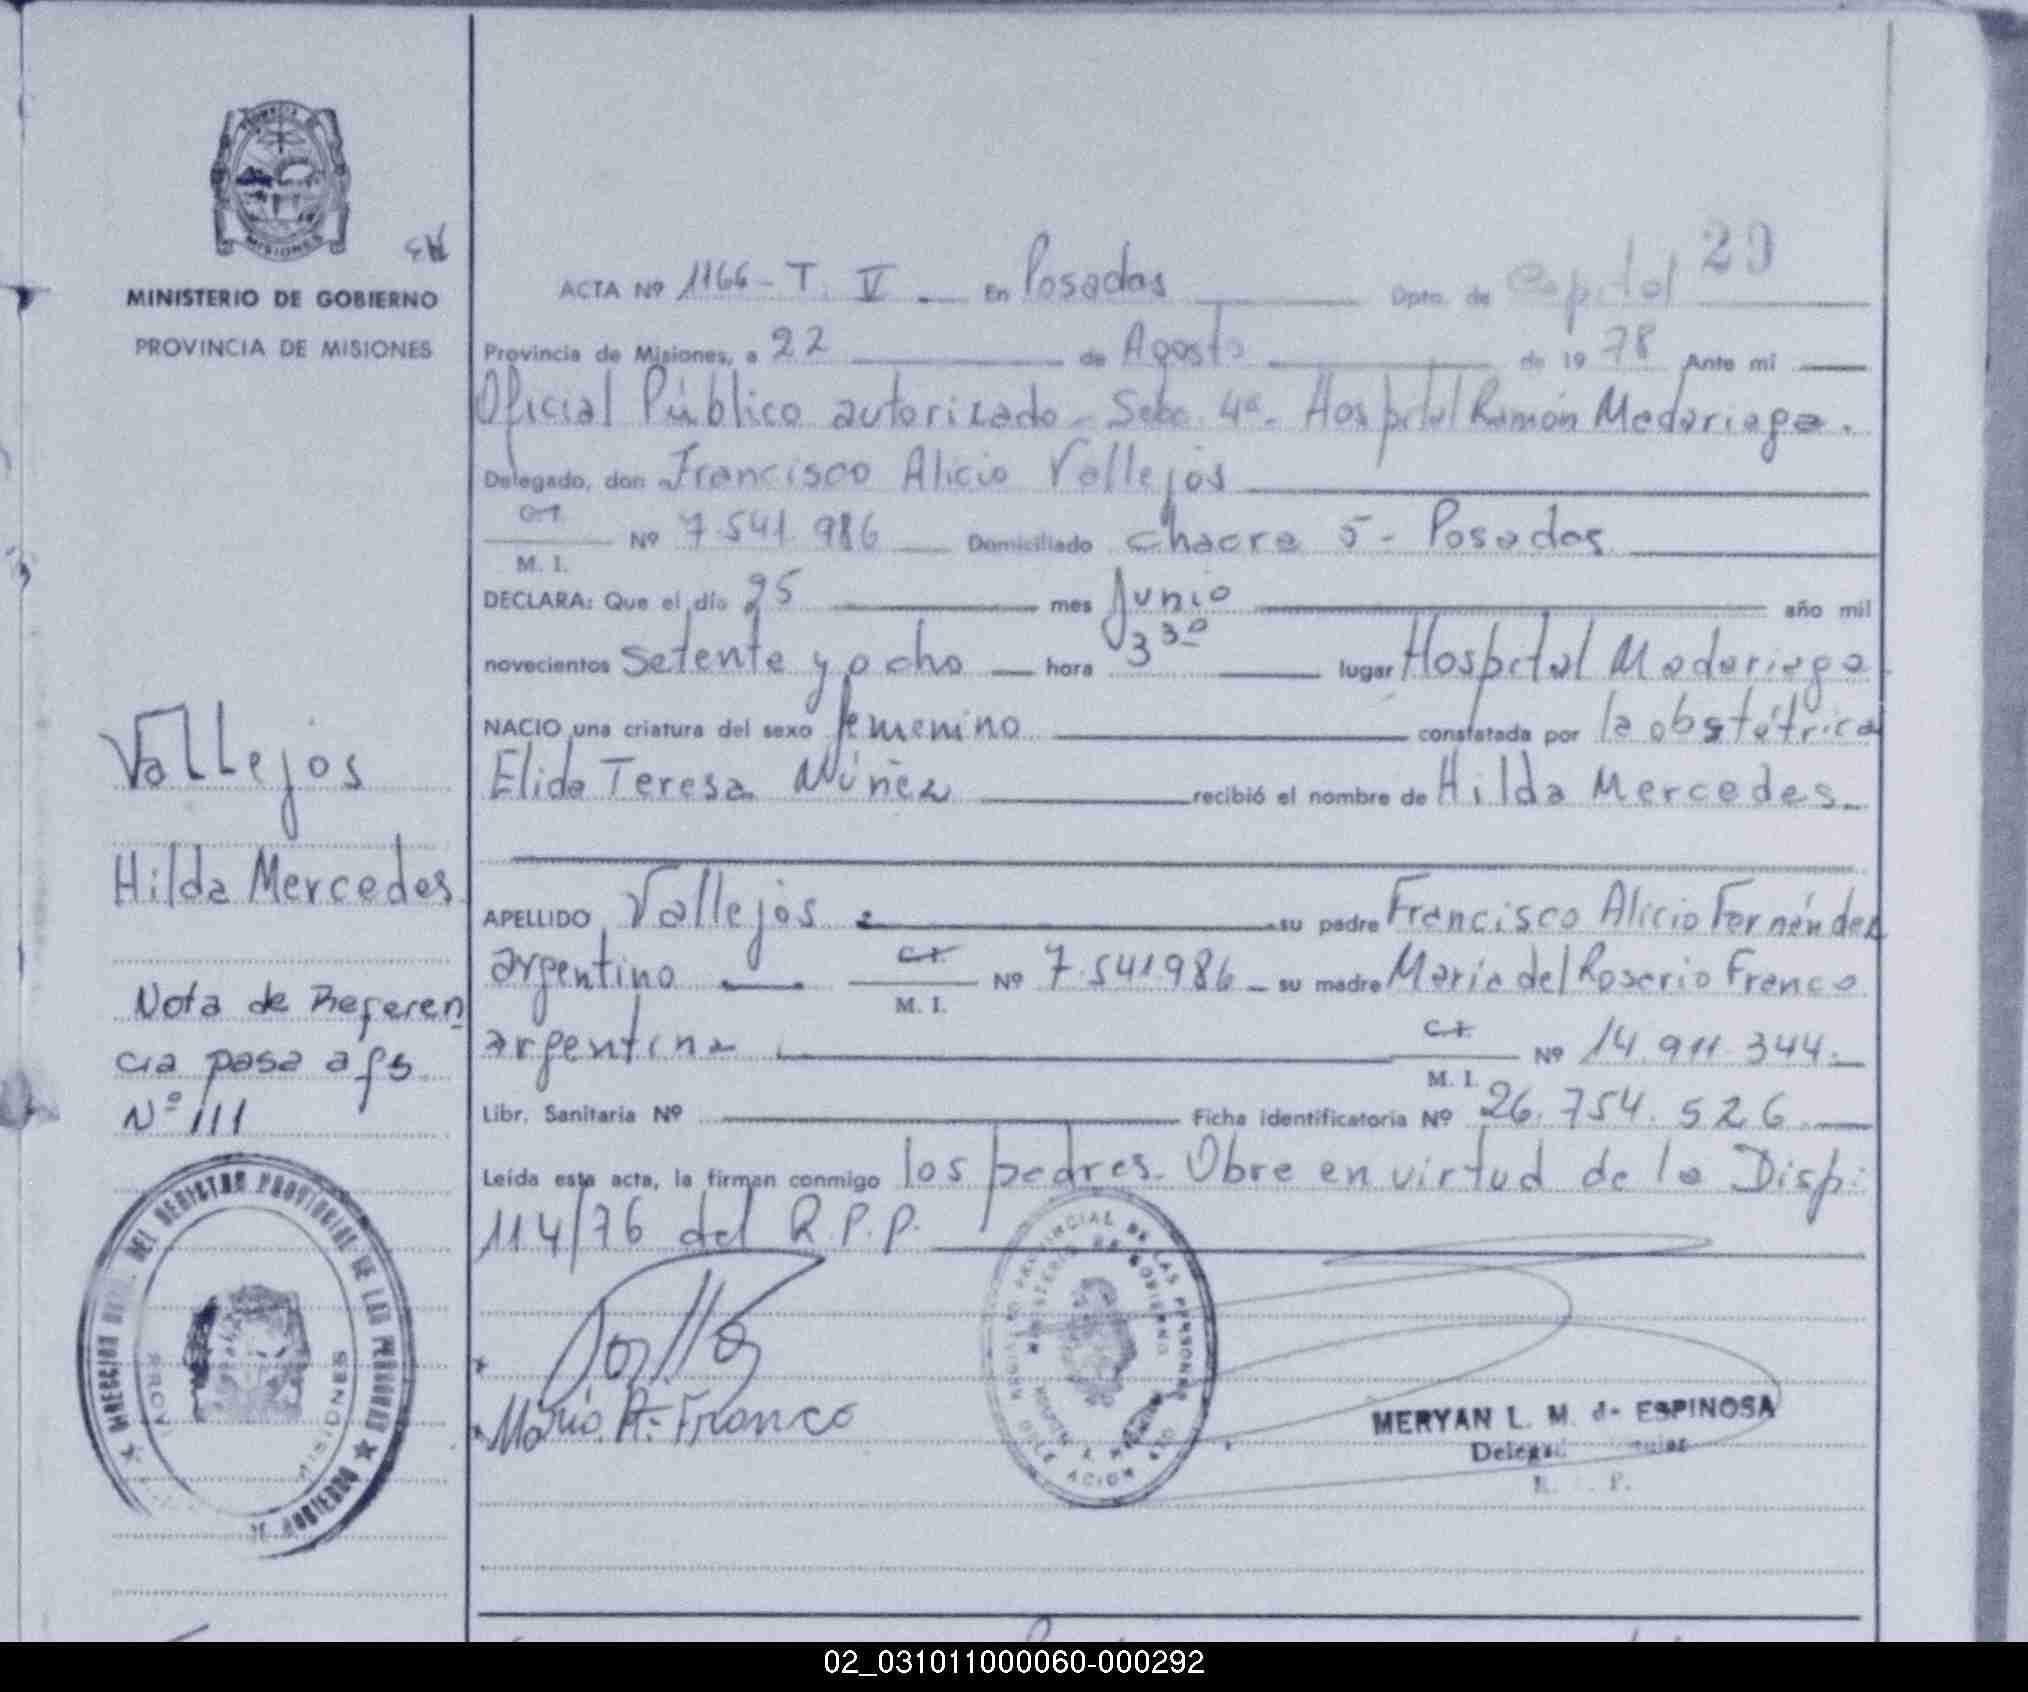 MISIONES
MINISTERIO DE GOBIERNO
PROVINCIA DE MISIONES
Vallejos
Hilda Mercedes
Nota de Referen
cia pasa a fs
Nº 111
DEL REGISTRO PROVINCIAL DE LAS PERSONAS
MISIONES
29
ACTA Nº 1166 - T. V — En Posadas Dpto. de Capital
Provincia de Misiones, a 22 de Agosto de 1978 Ante mi
Oficial Público autorizado - Secc. 4ª - Hospital Ramón Madariaga.
Delegado, don Francisco Alicio Vallejos
M. I. Nº 7.541.986 Domiciliado chacra 5 - Posadas
DECLARA: Que el día 25 mes Junio año mil
novecientos setenta y ocho hora 3 30 lugar Hospital Madariaga
NACIO una criatura del sexo femenino constatada por la obstétrica
Elida Teresa Núñez recibió el nombre de Hilda Mercedes
APELLIDO Vallejos su padre Francisco Alicio Fernández
argentino C.I. M. I. Nº 7.541986 - su madre Maria del Rosario Franco
argentina C.I. M. I. Nº 14.911.344.
Libr. Sanitaria Nº Ficha identificatoria Nº 26.754.526
Leída esta acta, la firman conmigo los padres. Obra en virtud de la Disp.
114/76 del R.P.P.
PROVINCIAL DE LAS PERSONAS
MINISTERIO DE GOBIERNO
Franco
MERYAN L. M. de ESPINOSA
02_031011000060-000292